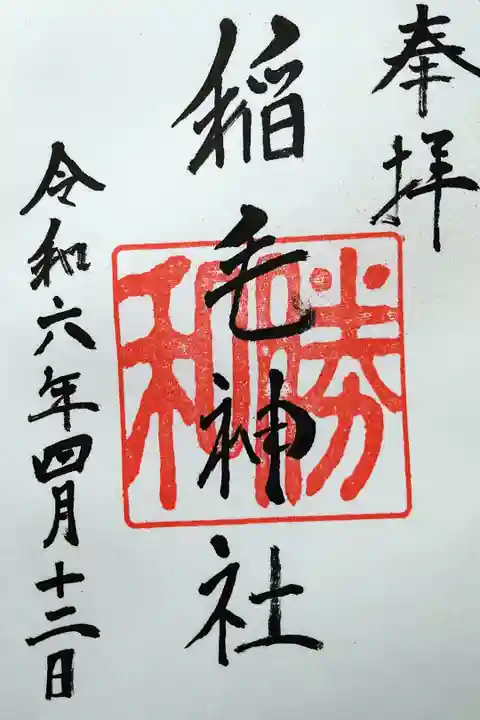 奉拝
稲毛神社
勝和
令和六年四月十三日